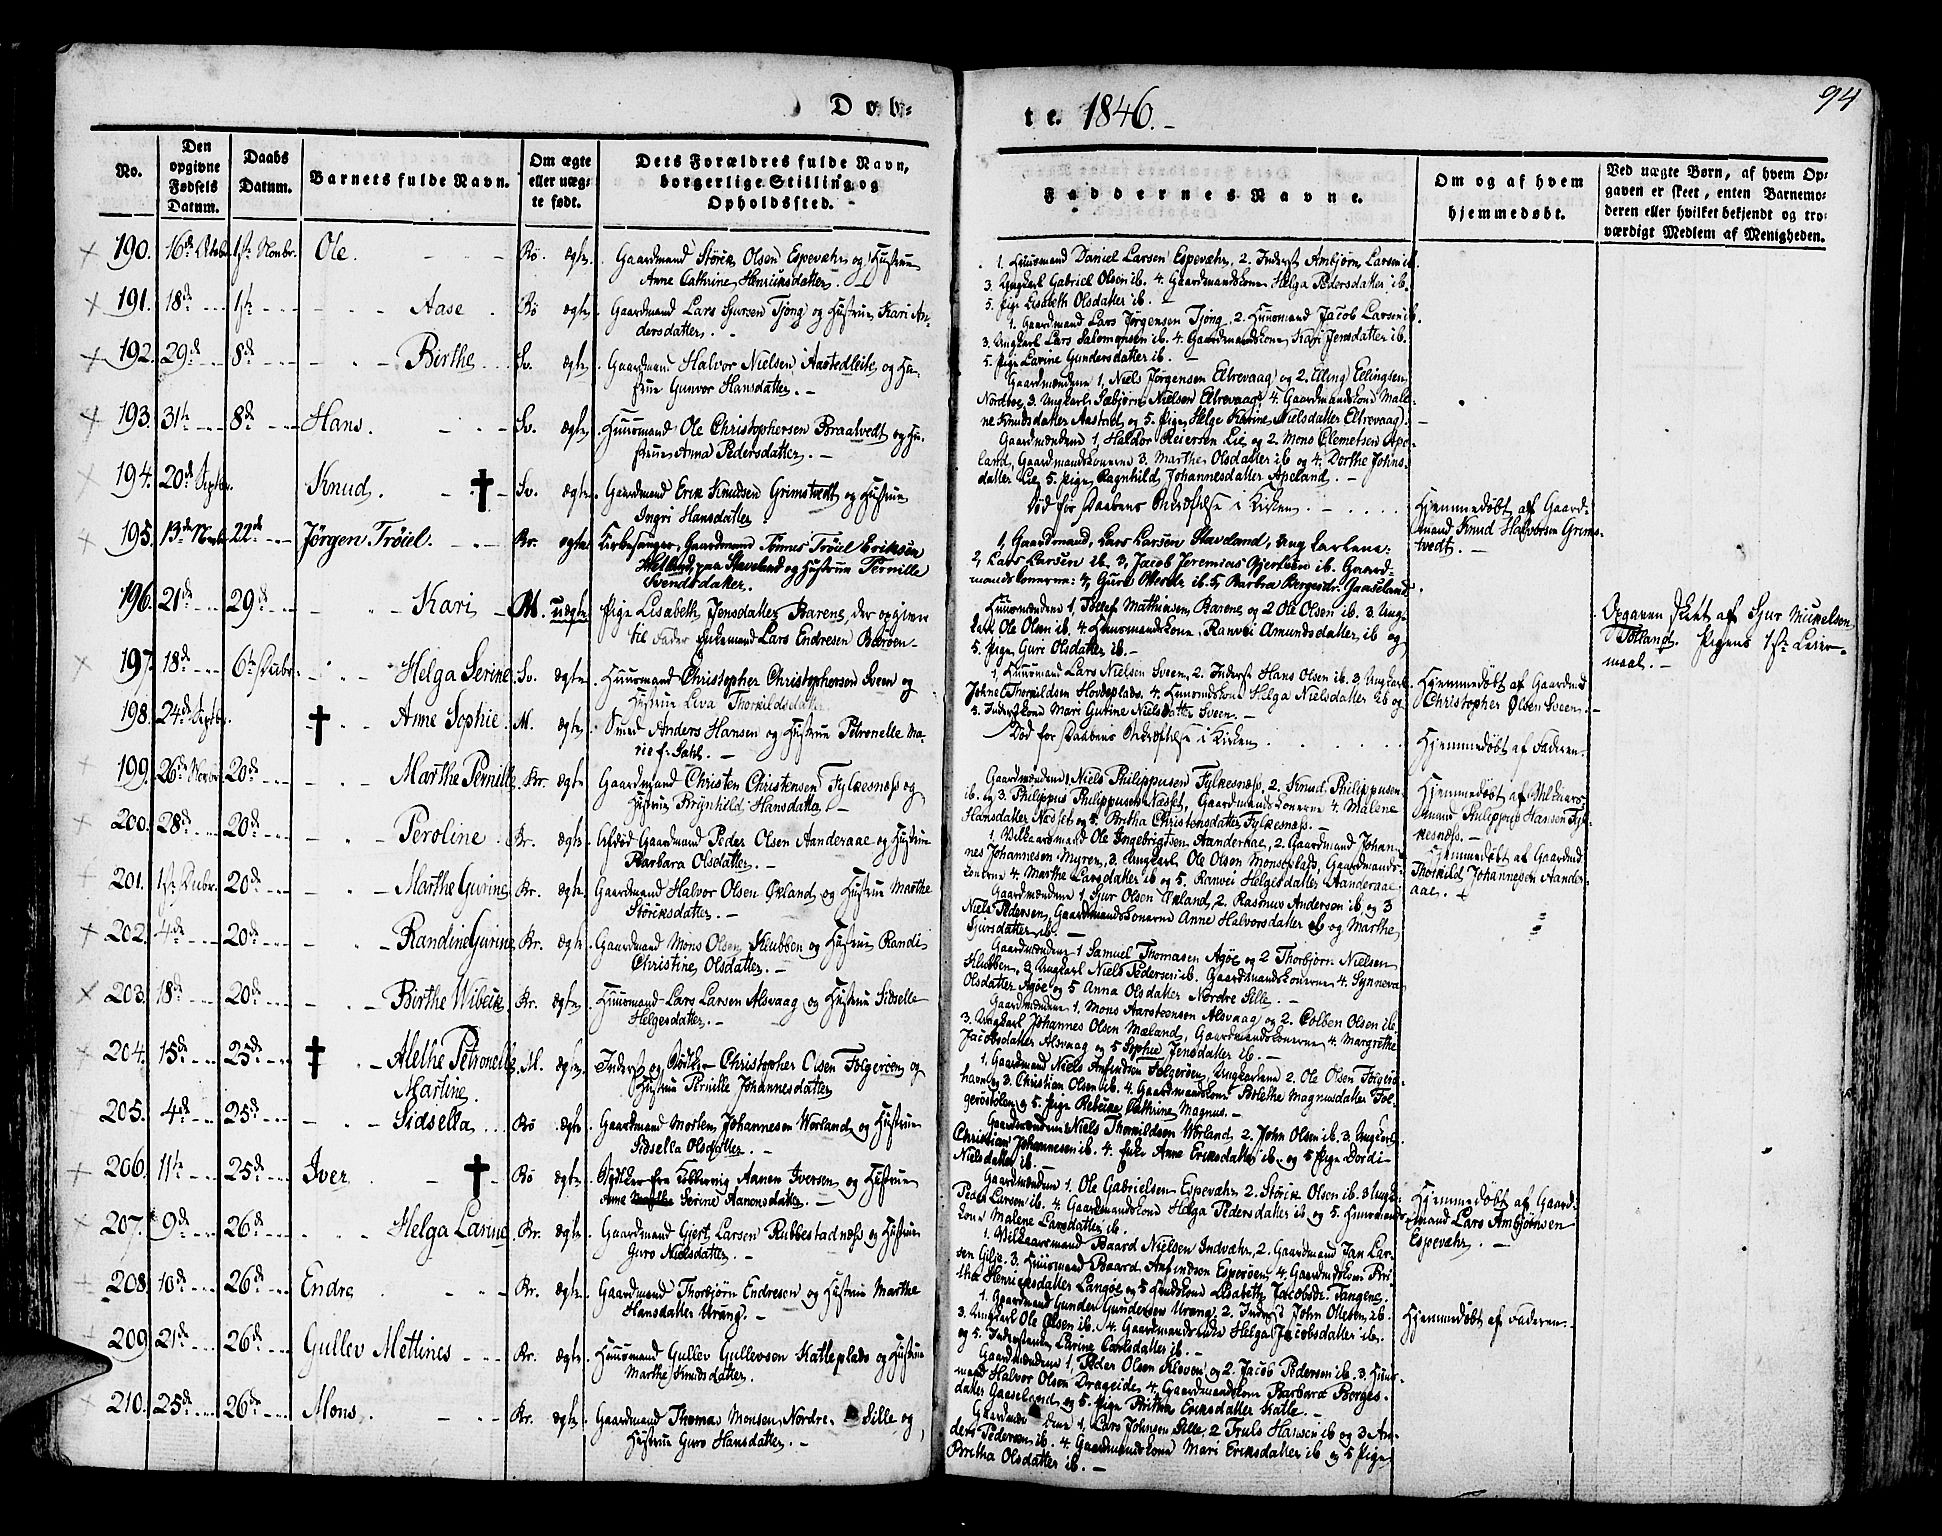 Døb-
te. 1846. -
94
No.
Den opgivne Fødsels Datum.
Daabs Datum.
Barnets fulde Navn.
Om ægte eller uægte født.
Dets Forældres fulde Navn, borgerlige Stilling og Opholdssted. -
Faddernes Navne.
Om og af hvem hjemmedøbt.
Ved uægte Børn, af hvem Opgaven er skeet, enten Barnemoderen eller hvilket bekjendt og troværdigt Medlem af Menigheden.
190. 16de Octobr. 1ste Novbr. Ole. Bø. ægte. Gaardmand Størik Olsen Espevæhr og Hustrue
Anne Cathrine Henriksdatter. -
1. Huusmand Daniel Larsen Espevæhr, 2. Inderst Ambjørn Larsen ib.
3. Ungkarl Gabriel Olsen ib. 4. Gaardmandskone Helga Pedersdatter ib.
5. Pige Lisabeth Olsdatter ib.
191. 18de 1ste Aase Bø ægte. Gaardmand Lars Sjursen Tjong og Hustrue Kari An-
dersdatter. -
1. Gaardmand Lars Jørgensen Tjong, 2. Huusmand Jacob Larsen ib.
3. Ungkarl Lars Salomonsen ib. 4. Gaardmandskone Kari Jensdatter ib.
5. Pige Larine Gundersdatter ib. -
192. 29de 8de Birthe Sv. ægte. Gaardmand Halvor Nielsen Aastedleite og Hu-
strue Gunvor Hansdatter. -
Gaardmændene 1. Niels Jørgensen Eltrevaag og 2. Elling Ellingsen
Nordboe, 3. Ungkarl Sæbjørn Nielsen Eltrevaag 4. Gaardmandskone Male-
ne Knudsdatter Aastad og 5. Pige Helge Karine Nielsdatter Eltrevaag. -
193. 31te 8de Hans. Sv. ægte. Huusmand Ole Christophersen Braatvedt og Hu-
strue Anna Pedersdatter. -
Gaardmændene 1. Haldor Reiersen Lie og 2. Mons Clemetsen Ape-
land, Gaardmandskonerne 3. Marthe Olsdatter ib og 4. Dorthe Johns-
datter Lie, 5. Pige Ragnhild Johannesdatter Apeland. -
194. 20de Septbr. Knud. ✝ Sv. ægte. Gaardmand Erik Knudsen Grimstvedt og Hustrue
Ingri Hansdatter
Død før Daabens Bekræftelse i Kirken. -
Hjemmedøbt af Gaard-
mand Knud Halvorsen Grims-
tvedt. -
195. 13de Novbr. 22de Jørgen Trøiel. Br. ægte. Kirkesanger, Gaardmand Tønnes Trøiel Eriksen
paa Stavland og Hustrue Pernille
Svendsdatter.
1. Gaardmand, Lars Larsen Stavland, Ungkarlene:
2, Lars Larsen ib, 3, Jacob Jeremias Gjertsen ib. Gaard-
mandskonerne: 4, Guro Ottersdr ib. 5, Bertha Børgesdr. Gaaseland.
196. 21de 29de Kari M. uægte. Pige Lisabeth Jensdatter Barene, der opgiver
til Fader Enkemand Lars Endresen Børøen
Huusmændene 1. Tollef Mathiasen Barene og 2 Ole Olsen ib. 3. Ung-
karl Ole Olsen ib. 4. Huusmandskone Ranvei Amundsdatter ib og
5. Pige Guri Olsdatter ib. -
Opgaven skeet af Sjur Mikelsen
Totland. Pigens 1ste Leier-
maal. -
197. 18de 6te Decbr. Helga Serine Sv. ægte. Huusmand Christopher Christophersen Sveen og
Hustrue Liva Thorkildsdatter
1. Huusmand Lars Nielsen Sveen, 2. Inderst Hans Olsen ib. 3 Ungkarl
Johne Thorkildsen Hovdeplads. 4. Huusmdskone Helga Nielsdatter ib og
5. Inderstkone Mari Gurine Nielsdatter Sveen. -
Hjemmedøbt af Gaardmd
Christopher Olsen Sveen. -
198. 24de Septbr. ✝ Anne Sophie. M. ægte. Smed Anders Hansen og Hustrue Petronelle Ma-
rie f. Dahl. -
Død før Daabens Bekræftelse i Kirken
Hjemmedøbt af Faderen.
199. 26de Novbr. 20de Marthe Pernille Br. ægte. Gaardmand Christen Christensen Fylkesnæs og
Hustrue Brynhild Hansdatter -
Gaardmændene 1. Niels Philippusen Fylkesnæss, 2. Knud Philippusen
ib. og 3. Philippus Philippusen Næsset, Gaardmandskonerne 4. Malene
Hansdatter Næsset og 5. Britha Christensdatter Fylkesnæss. -
Hjemmedøbt af Vilkaars-
mand Philippus Hansen Fyl-
kesnæss. -
200. 28de 20de Peroline Br. ægte. Afdød Gaardmand Peder Olsen Aanderaae og Hustrue
Barbara Olsdatter. -
1. Vilkaarsmand Ole Ingebrigtsen Aanderaae, 2. Gaardmand Johan-
nes Johannesen Myren, 3. Ungkarl Ole Olsen Monseplads, Gaardmands-
konerne 4. Marthe Larsdatter ib og 5. Ranvei Helgesdatter Aanderaae.
Hjemmedøbt af Gaardmd
Thorkild Johannesen Aander-
aae. -
201. 1ste Decbr. 20de Marthe Gurine Br. ægte. Gaardmand Halvor Olsen Økland og Hustrue Marthe
Størksdatter. -
Gaardmændene 1. Sjur Olsen Økland, 2. Rasmus Andersen ib og 3
Niels Pedersen, Gaardmandskonerne Anne Halvorsdatter ib og Marthe
Sjursdatter ib. -
202. 4de 20de Randine Gurine Br. ægte. Gaardmand Mons Olsen Klubben og Hustrue Randi
Christine Olsdatter. -
Gaardmændene 1 Samuel Thomasen Agøe og 2 Thorbjørn Nielsen
Klubben, 3. Ungkarl Niels Pedersen ib. Gaardmandskonerne 4. Synneva
Olsdatter Agøe og 5 Anna Olsdatter Nordre Sille. -
203. 18de 20de Birthe Wibeke Br. ægte. Huusmand Lars Larsen Alsvaag og Hustrue Sidselle
Helgesdatter. -
Gaardmændene 1. Mons Aarstensen Alsvaag og 2. Colben Olsen ib.
3. Ungkarl Johannes Olsen Mæland, Gaardmandskonerne 4. Margrethe
Jacobsdatter Alsvaag og 5 Sophie Jensdatter ib. -
204. 15de 25de ✝ Alethe Petronelle
Martine. M. ægte. Inderst og Bødker Christopher Olsen Folgerøen og
Hustrue Pernille Johannesdatter
1. Gaardmand Niels Anfindsen Folgerøen, Ungkarlene 2. Ole Olsen Folgerø-
havn og 3. Christian Olsen ib. 4. Gaardmandskone Bolethe Magnusdatter Fol-
gerøstolen og 5. Pige Rebekke Cathrine Magnus. -
205. 4de 25de Sidsella Bø ægte. Gaardmand Morten Johannesen Worland og Hustrue
Sidsella Olsdatter. -
Gaardmændene Niels Thorkildsen Worland, 2. John Olsen ib. 3. Ungkarl
Christian Johannesen ib. 4. Enke Anne Eriksdatter ib. og 5 Pige Dordi
Nielsdatter ib. -
206. 11te 25de Iver ✝ Bø ægte. Bødker Aanen Iversen og Hustrue
Anne Serine Aanonsdatter. -
Gaardmændene 1. Ole Gabrielsen Espevæhr 2. Størik Olsen ib. 3 Ungk.
Peder Larsen ib. 4. Gaardmandskone Helga Pedersdatter ib og 5. Huusmands-
kone Malene Larsdatter ib.
Hjemmedøbt af Gaard-
mand Lars Ambjørnsen
Espevæhr. -
207. 9de 26de Helga Larine Br. ægte. Gaardmand Gjert Larsen Rubbestadnæss og Hustrue
Guro Nielsdatter. -
1. Vilkaarsmand Baard Nielsen Indvæhr, 2. Gaardmand Jan Lar-
sen Gilje. 3. Huusmand Baard Anfindsen Esperøen, 4. Gaardmdskone Bri-
tha Henriksdatter Langøe og 5 Huusmdskone Lisabeth Jacobsdr. Tangene.
208. 16de 26de Endre Br. ægte. Gaardmand Thorbjørn Endresen og Hustrue Marthe
Hansdatter Urang. -
1. Gaardmand Gunder Gundersen Urang, 2. Inderst John Ottesen ib.
3. Ungkarl Ole Olsen ib. 4. Gaardmands Enke Helga Jacobsdatter ib.
og 5. Inderstenke Larine Carlsdatter ib. -
Hjemmedøbt af Faderen. -
209. 21de 26de Gullev Mettines Br. ægte. Huusmand Gullev Gullevsen Katleplads og Hustrue
Marthe Knudsdatter.
Gaardmændene 1. Peder Olsen Kleven og 2. Jacob Pedersen ib. 3. Huus-
mand Halvor Olsen Drageide, 4. Gaardmandskone Barbara Børges-
datter Gaaseland og 5. Pige Britha Eriksdatter Katle. -
210. 25de 26de Mons. Br. ægte. Gaardmand Thomas Monsen Nordre Sille og
Hustrue Guro Hansdatter. -
Gaardmændene 1. Lars Johnsen Sille, 2 Truls Hansen ib og 3 An-
ders Pedersen ib. 4. Gaardmandskone Mari Eriksdatter ib og 5 Pige
Britha Olsdatter ib. -